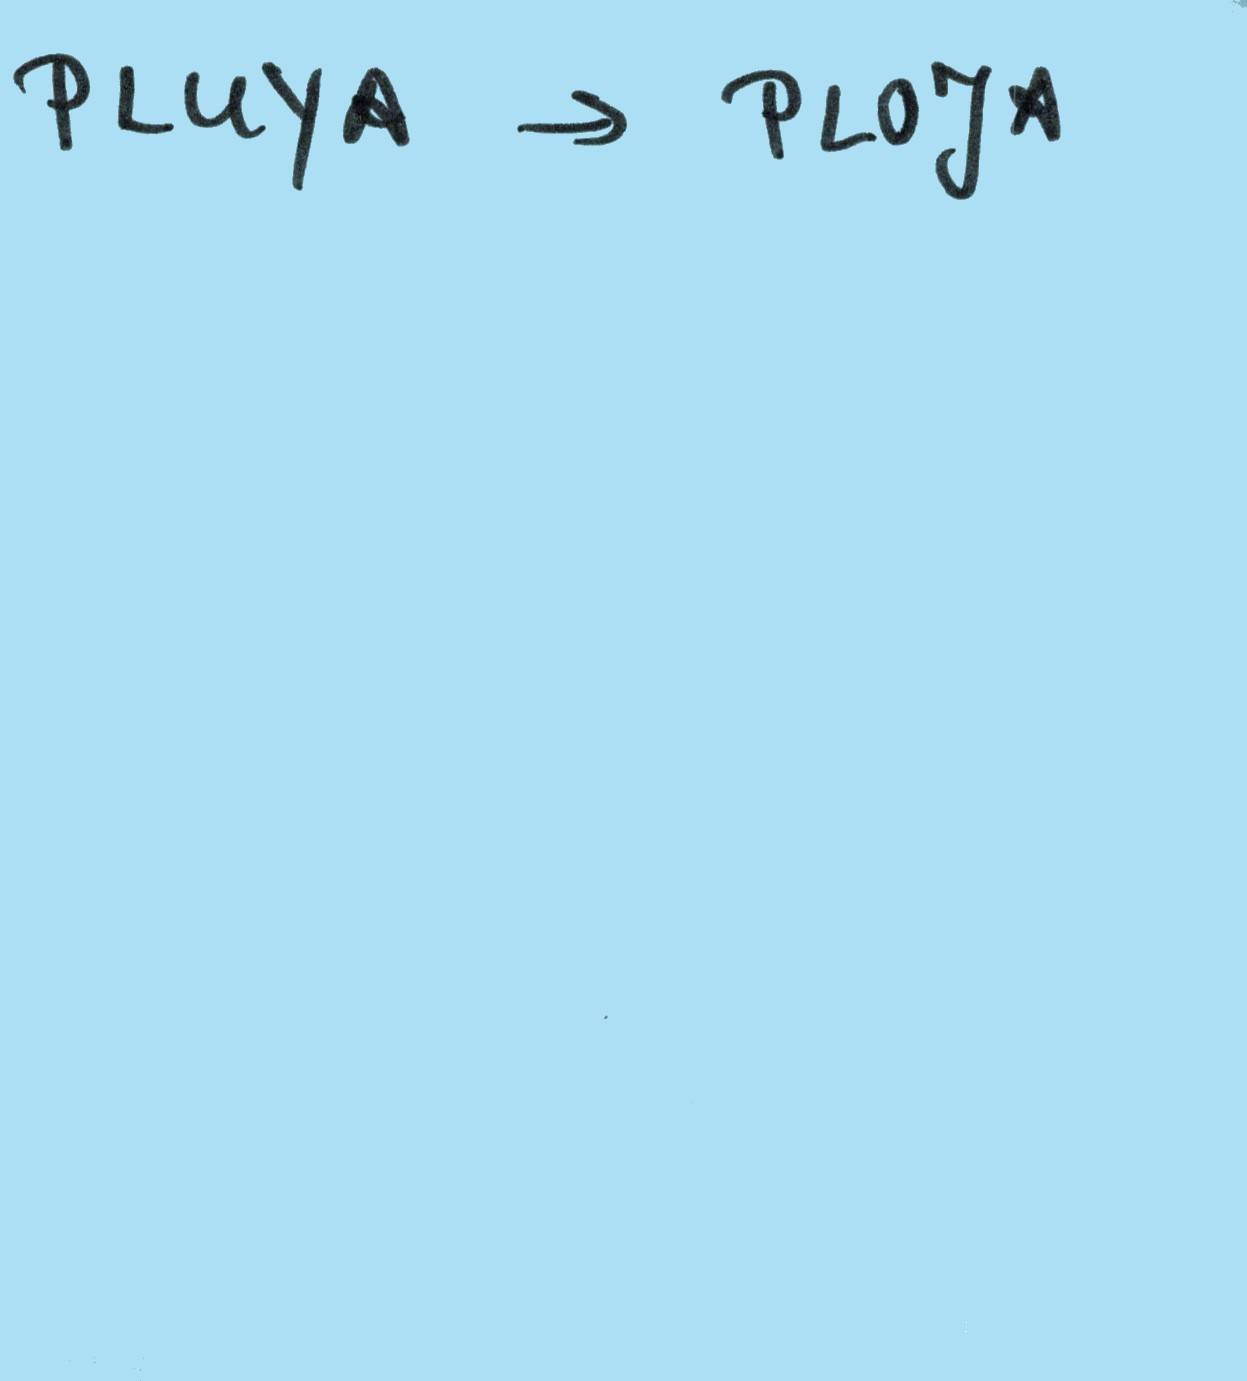 PLUYA → PLOJA